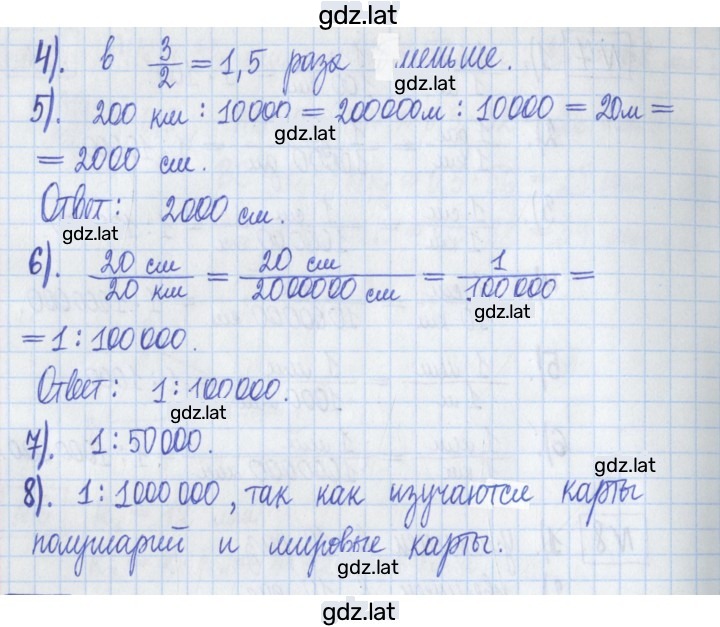 gdz.lat
4). в 3/2 = 1,5 раза меньше.
gdz.lat
5). 200 км : 10000 = 200000м : 10000 = 20м =
gdz.lat
= 2000 см.
Ответ: 2000 см.
gdz.lat
6). 20 см/20 км = 20 см/2000000 см = 1/100000 =
gdz.lat
= 1 : 100000.
Ответ: 1 : 100000.
gdz.lat
7). 1 : 50000.
gdz.lat
8). 1 : 1000 000, так как изучаются карты
полушарий и мировые карты.
gdz.lat
gdz.lat